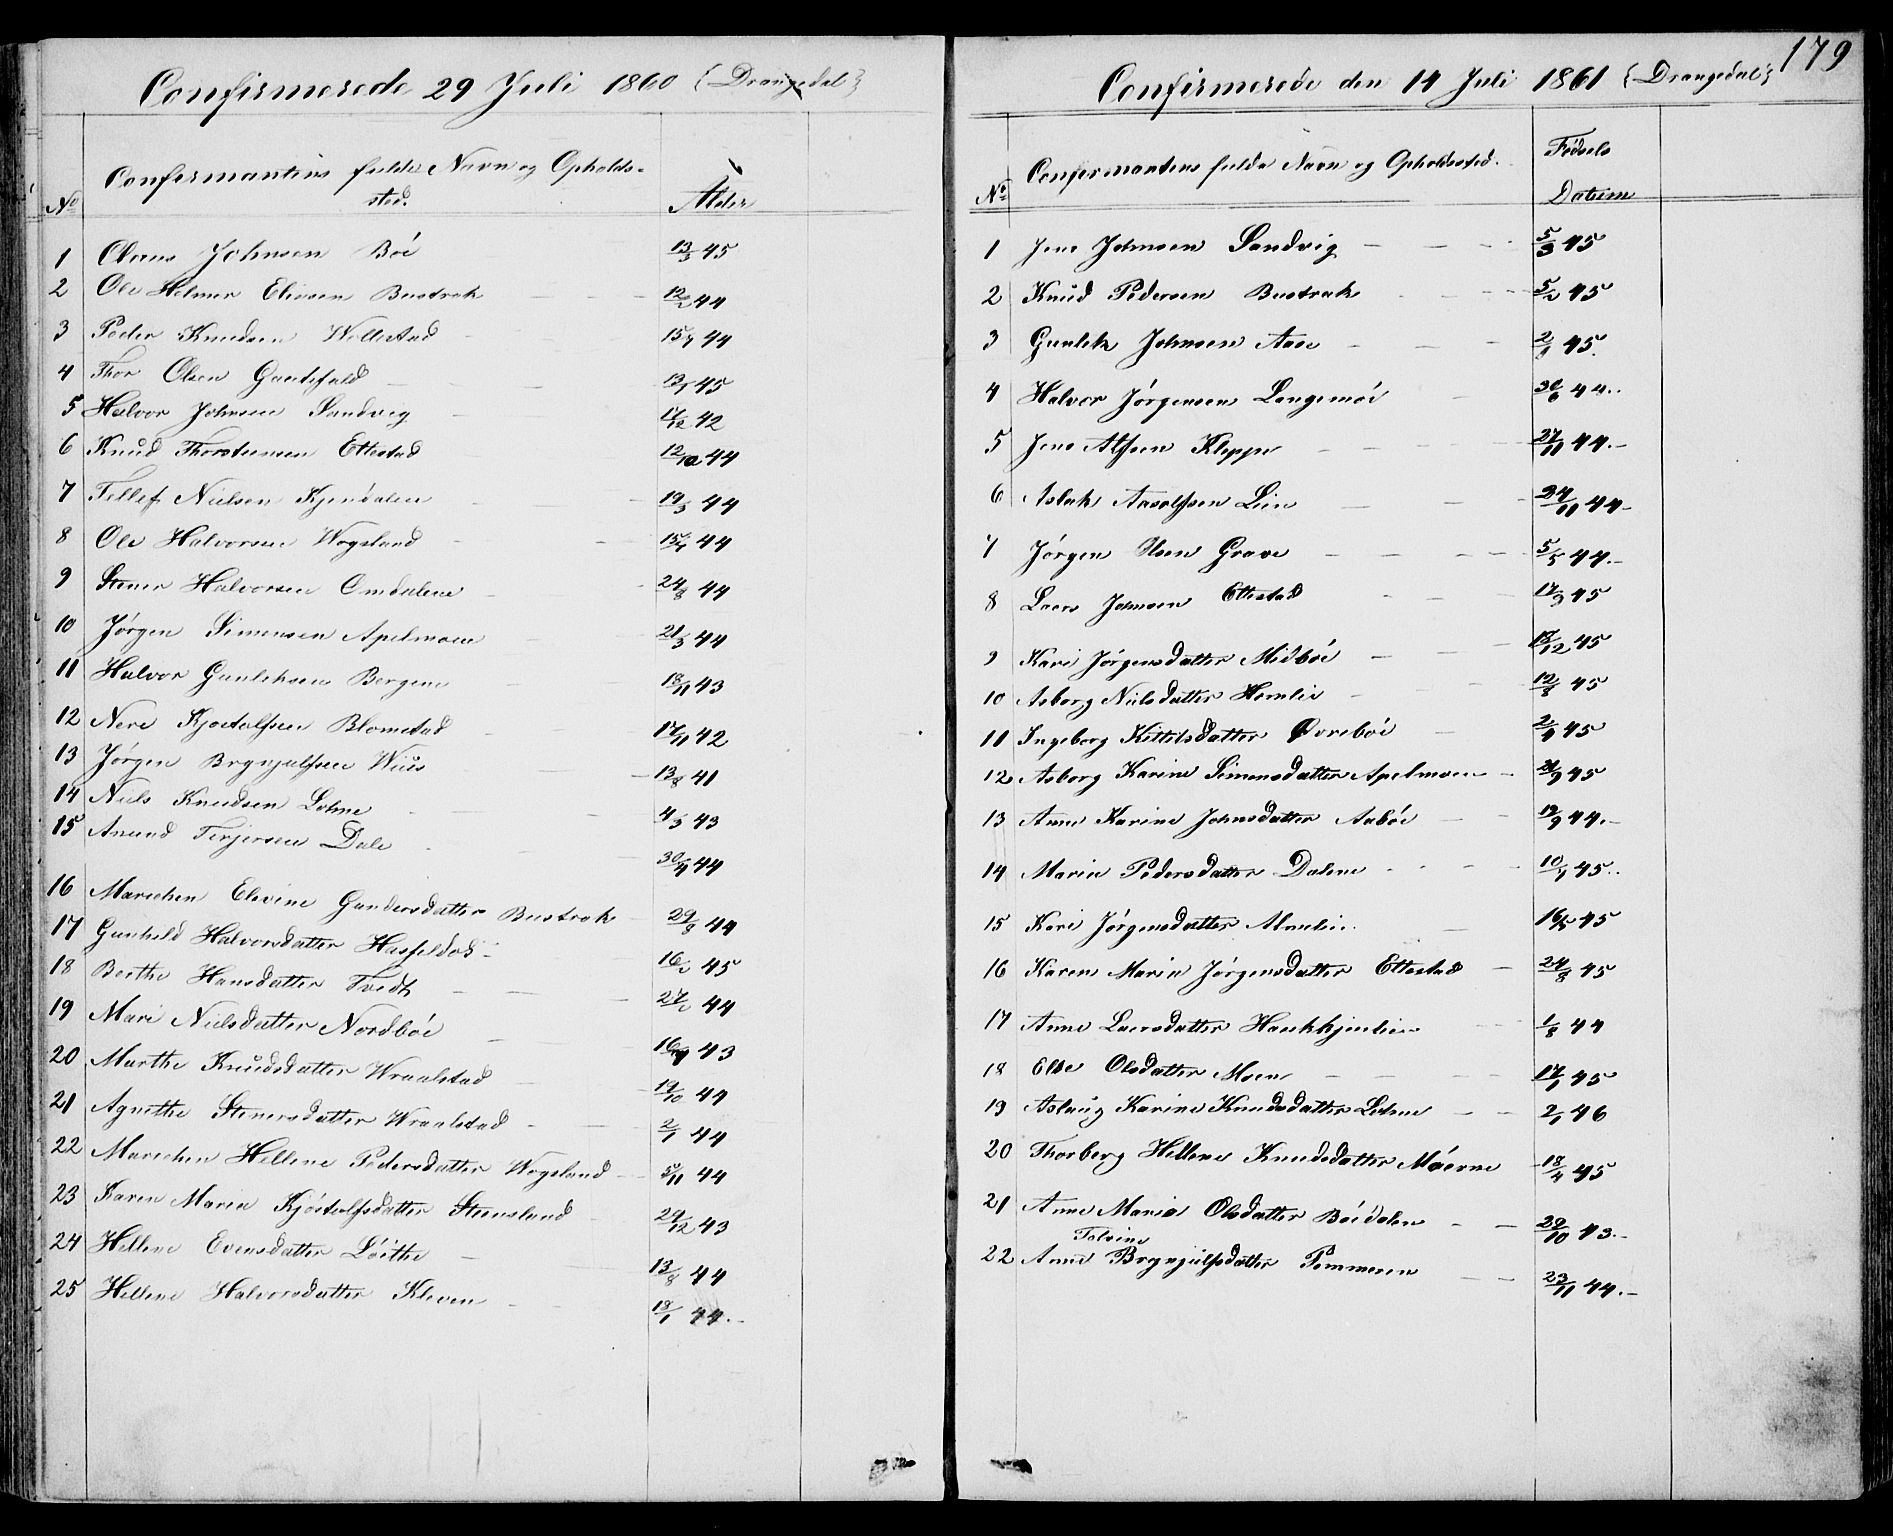 Confirmerede 29 Juli 1860 {Drangedal}
No Confirmantens fulde Navn og Opholds-
sted. Alder
1 Olaus Johnsen Böe 13/3 45
2 Ole Helmer Eliesen Bustrak 12/2 44
3 Peder Knudsen Wollestad 15/7 44
4 Thor Olsen Gautefald 12/1 45
5 Halvor Johnsen Sandvig 17/12 42
6 Knud Thorstensen Ettestad 12/10 44
7 Tellef Nielsen Kjendalen 19/3 44
8 Ole Halvorsen Wogsland 15/4 44
9 Stener Halvorsen Omdalene 24/8 44
10 Jörgen Simensen Apelmoen 21/3 44
11 Halvor Gunleksen Bergene 18/11 43
12 Nere Kjøstolfsen Blomstad 17/11 42
13 Jörgen Brynjulfsen Wius 13/8 41
14 Niels Knudsen Lohne 4/3 43
15 Anund Terjersen Dale 30/4 44
16 Marichen Elevine Gundersdatter Bustrak 29/9 44
17 Gunhild Halvorsdatter Hasfeldod 16/2 45
18 Berthe Hansdatter Tvedt 27/2 44
19 Mari Nielsdatter Nordböe 16/4 43
20 Marthe Knudsdatter Wraalstad 19/10 44
21 Agnethe Stenersdatter Wraalstad 2/1 44
22 Marichen Hellene Pedersdatter Wogsland 5/11 44
23 Karen Maria Kjöstolfsdatter Steensland 29/12 43
24 Hellene Evensdatter Löithe 13/8 44
25 Hellene Halvorsdatter Kleven 18/1 44.-
179
Confirmerede den 14 Juli 1861 {Drangedal}
No Confirmantens fulde Navn og Opholdssted. Fødsels
Datum
1 Jens Johnsen Sandvig 5/3 45
2 Knud Pedersen Bustrak 5/2 45
3 Gunlek Johnsen Aase 2/1 45.
4 Halvor Jörgensen Langemöi 30/6 44..
5 Jens Alfsen Kleppe 27/11 44.-
6 Aslak Aasolfsen Lien 24/11 44-
7 Jörgen Olsen Grave 5/5 44.-
8 Laers Johnsen Ettestad 17/3 45
9 Kari Jörgensdatter Midböe 17/12 45
10 Asborg Nielsdatter Homlie 12/8 45
11 Ingeborg Kittilsdatter Øvreböe 2/4 45
12 Asborg Karine Simensdatter Apelmoen 21/9 45
13 Anne Karine Johnsdatter Aaböe 19/9 44.-
14 Maria Pedersdatter Dalene 10/4 45..
15 Kari Jörgensdatter Almlie 16/5 45
16 Karen Maria Jörgensdatter Ettestad 24/8 45
17 Anne Laersdatter Haukkjenlien 1/8 44
18 Else Olsdatter Moen 17/1 45
19 Aslaug Karine Knudsdatter Lohne 2/1 46
20 Thorberg Hellene Knudsdatter Möerne 18/4 45
21 Anne Maria Olsdatter Böedalen 29/10 43.-
Tolvine
22 Anne Brynjulfsdatter Pemmeren 23/11 44.-